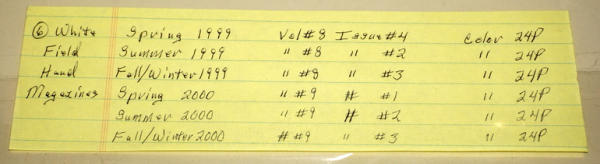 ⑥ White Spring 1999 Vol#8 Issue#4 Color 24P
Field Summer 1999 " #8 " #2 " 24P
Hand Fall/Winter 1999 " #8 " #3 " 24P
Magazines Spring 2000 " #9 # #1 " 24P
Summer 2000 " #9 # #2 " 24P
Fall/Winter 2000 # #9 " #3 " 24P